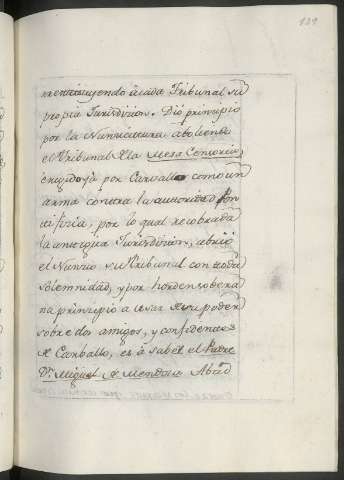 121
restituyendo à cada Tribunal su
propia Jurisdicion. Dió principio
por la Nunciatura aboliendo
el Tribunal de la Mesa Censoria,
erigido ya por Carvallo como un
arma contra la autoridad Pon
tificia, por lo qual recobrada
la antigua Jurisdicion, abrió
el Nunzio su Tribunal con toda
solemnidad, y por horden sobera
na principio a usar de su poder
sobre dos amigos, y confidentes
de Carballo, es à saber el Padre
Dn. Miguel de Mendoza Abad